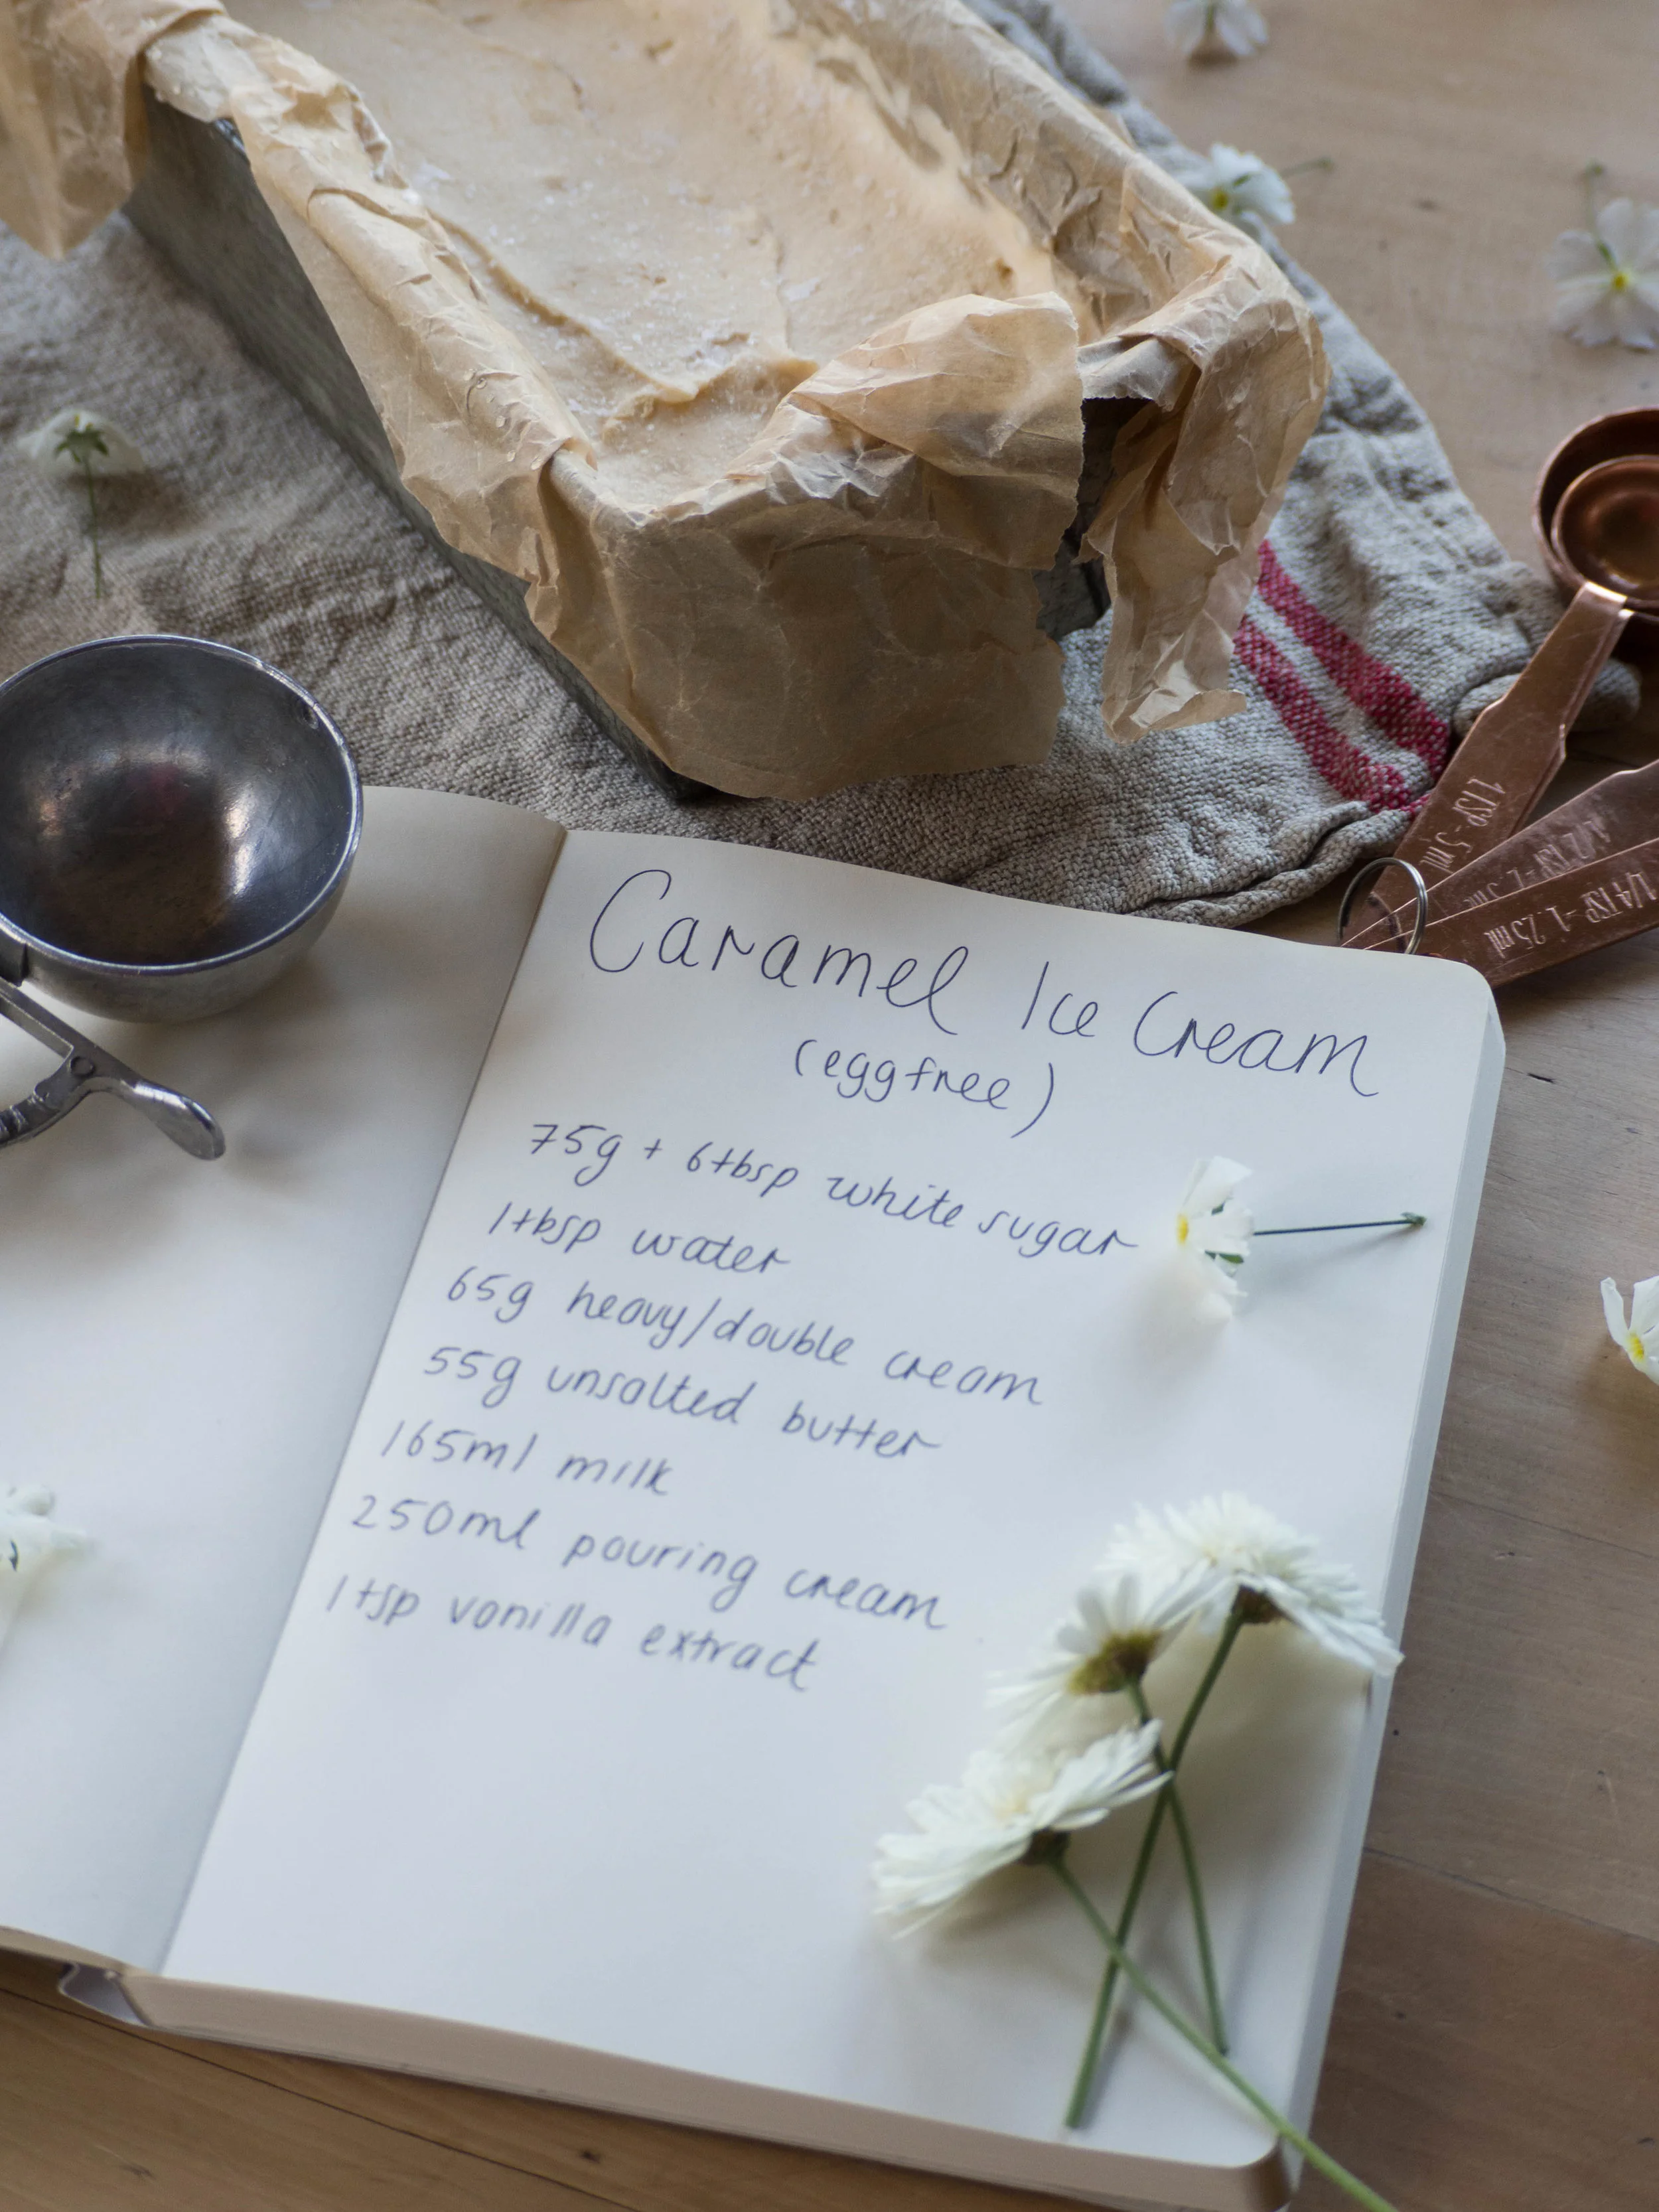 Caramel Ice Cream
(egg free)
75g + 6tbsp white sugar
1tbsp water
65g heavy/double cream
55g unsalted butter
165ml milk
250ml pouring cream
1tsp vanilla extract
1 TSP - 5 ml
1/2 TSP - 2.5 ml
1/4 TSP - 1.25 ml